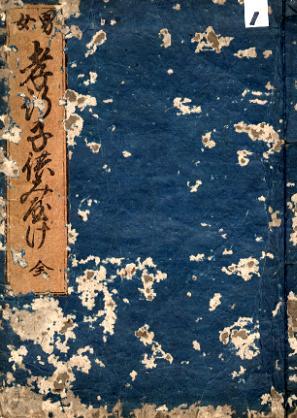 男女
孝行子供みやけ
全
1